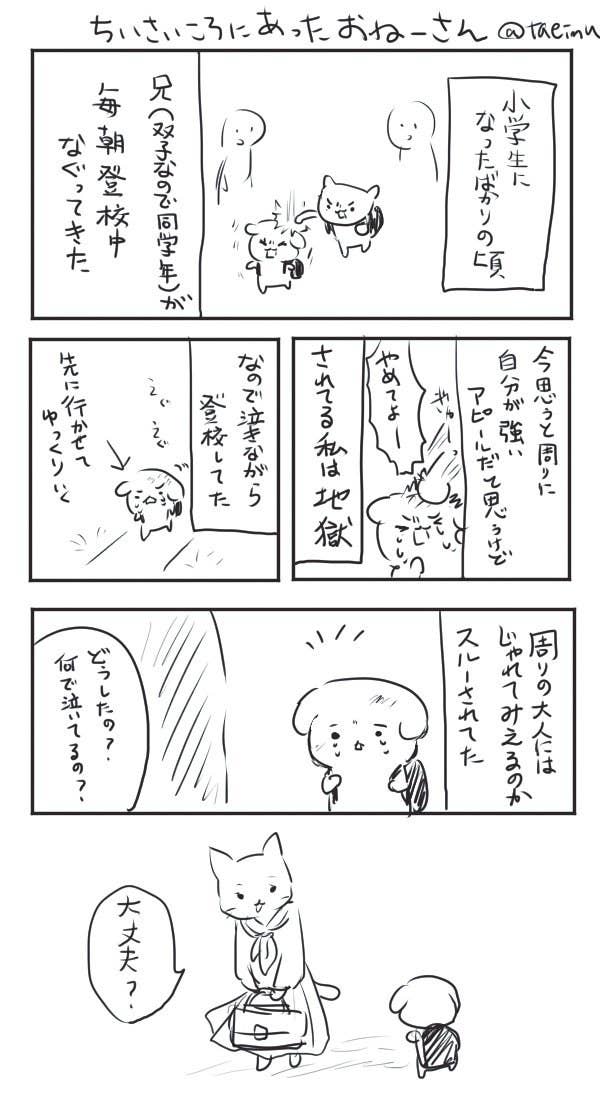 ちいさいころにあったおねーさん @taeimu
小学生に
なったばかりの頃
兄(双子なので同学年)が
毎朝登校中
なぐってきた
今思うと周りに
自分が強い
アピールだて思うけど
やめてよー
されてる私は地獄
なので泣きながら
登校してた
えぐ
えぐ
先に行かせて
ゆっくりいく
周りの大人には
じゃれてみえるのか
スルーされてた
どうしたの?
何で泣いてるの?
大丈夫?